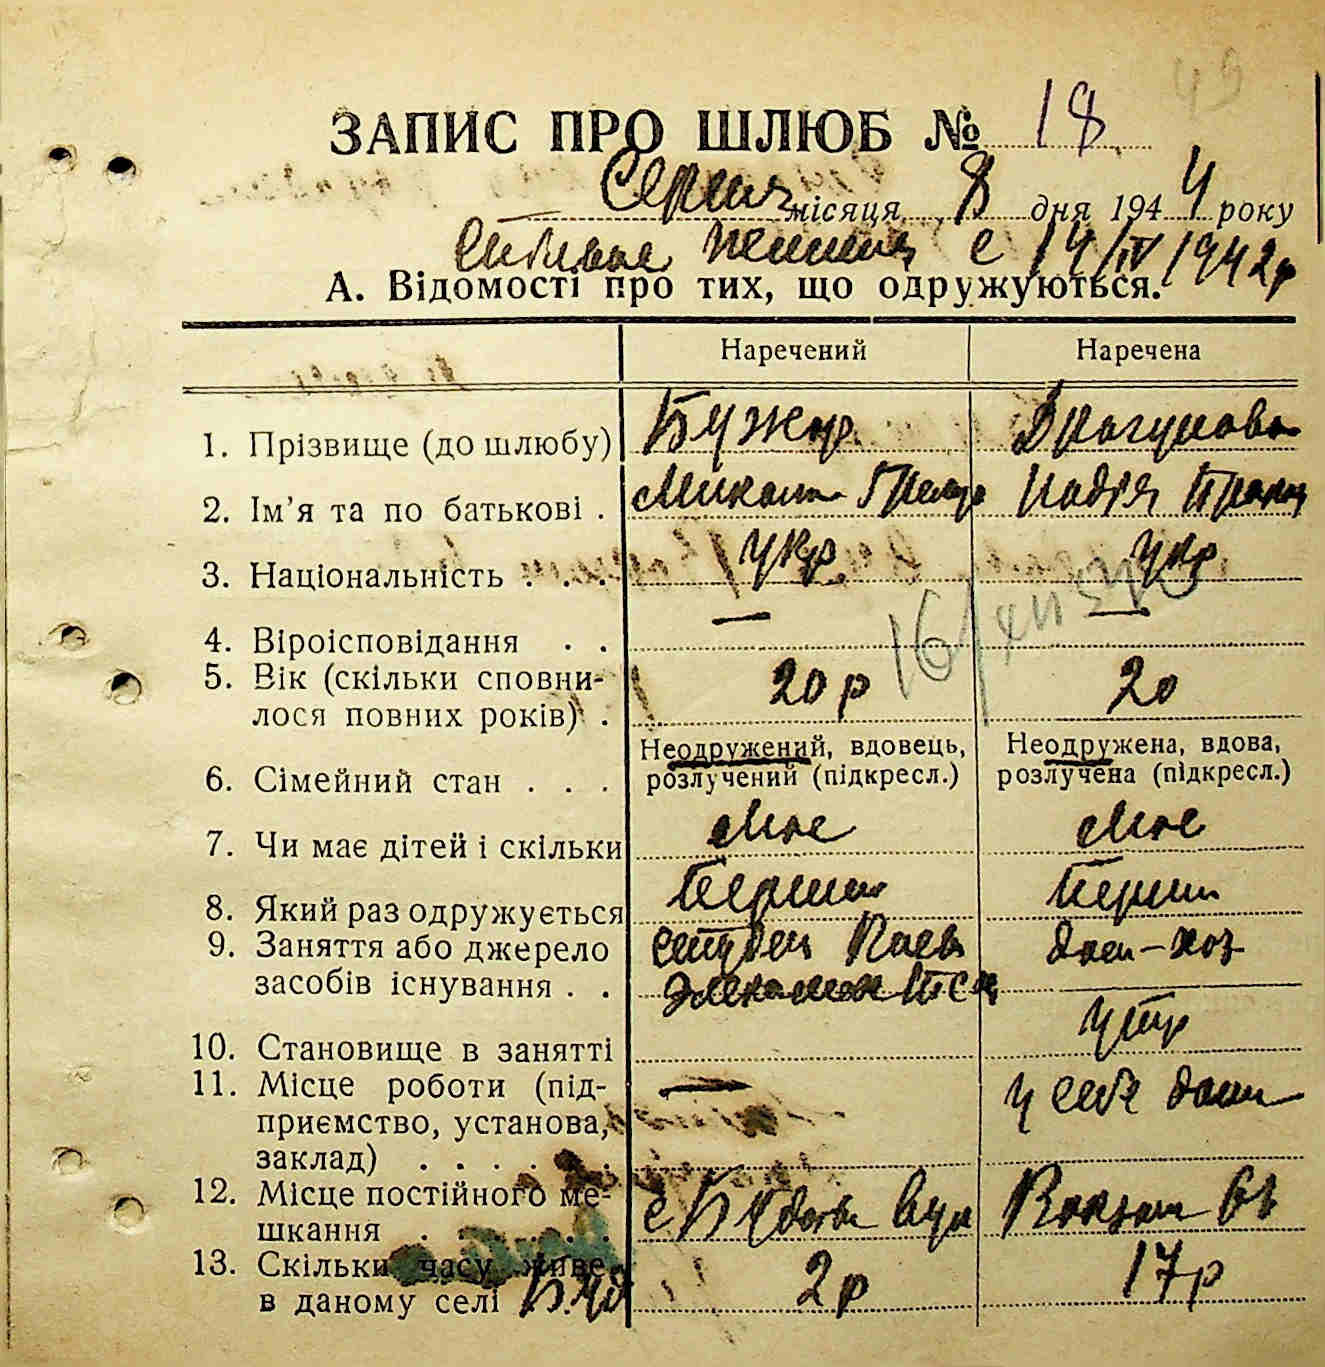 ЗАПИС ПРО ШЛЮБ № 18
Серпня місяця 8 дня 1944 року
с 14/IV 1942р
А. Відомості про тих, що одружуються.
Наречений Наречена
1. Прізвище (до шлюбу) Бужор Драгунова
2. Ім’я та по батькові . Микола Надія
3. Національність . . . укр укр
4. Віроісповідання . . — —
16/XII
5. Вік (скільки сповни- 20 р 20
лося повних років) .
Неодружений, вдовець, Неодружена, вдова,
6. Сімейний стан . . . розлучений (підкресл.) розлучена (підкресл.)
7. Чи має дітей і скільки
8. Який раз одружується Перший Перший
9. Заняття або джерело студен дом-хоз
засобів існування . .
10. Становище в занятті утр
11. Місце роботи (під- — у себе дома
приємство, установа,
заклад) . . . . . .
12. Місце постійного ме- с вул 61
шкання . . . . . .
13. Скільки часу живе 2 р 17 р
в даному селі